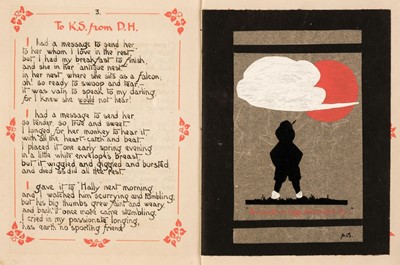 3.
To K.S. from D.H.
I had a message to send her
to her whom I love in the rest
but I had my breakfast to finish,
and she in her antique nest
in her nest where she sits as a falcon,
oh! so ready to swoop and tear
it was vain to speak to my darling,
for I knew she would not hear!
I had a message to send her
so tender, so true and sweet
I longed for her monkey to hear it
with all the heart-catch and beat
I placed it one early spring evening
in a little white envelope's breast
but it wiggled and giggled and bursted
and died as did all the rest.
I gave it to Mally next morning
and I watched him scurrying and tumbling,
but his big thumbs grew faint and weary
and back'd once more came stumbling.
I cried in my passionate longing,
has earth no sporting friend